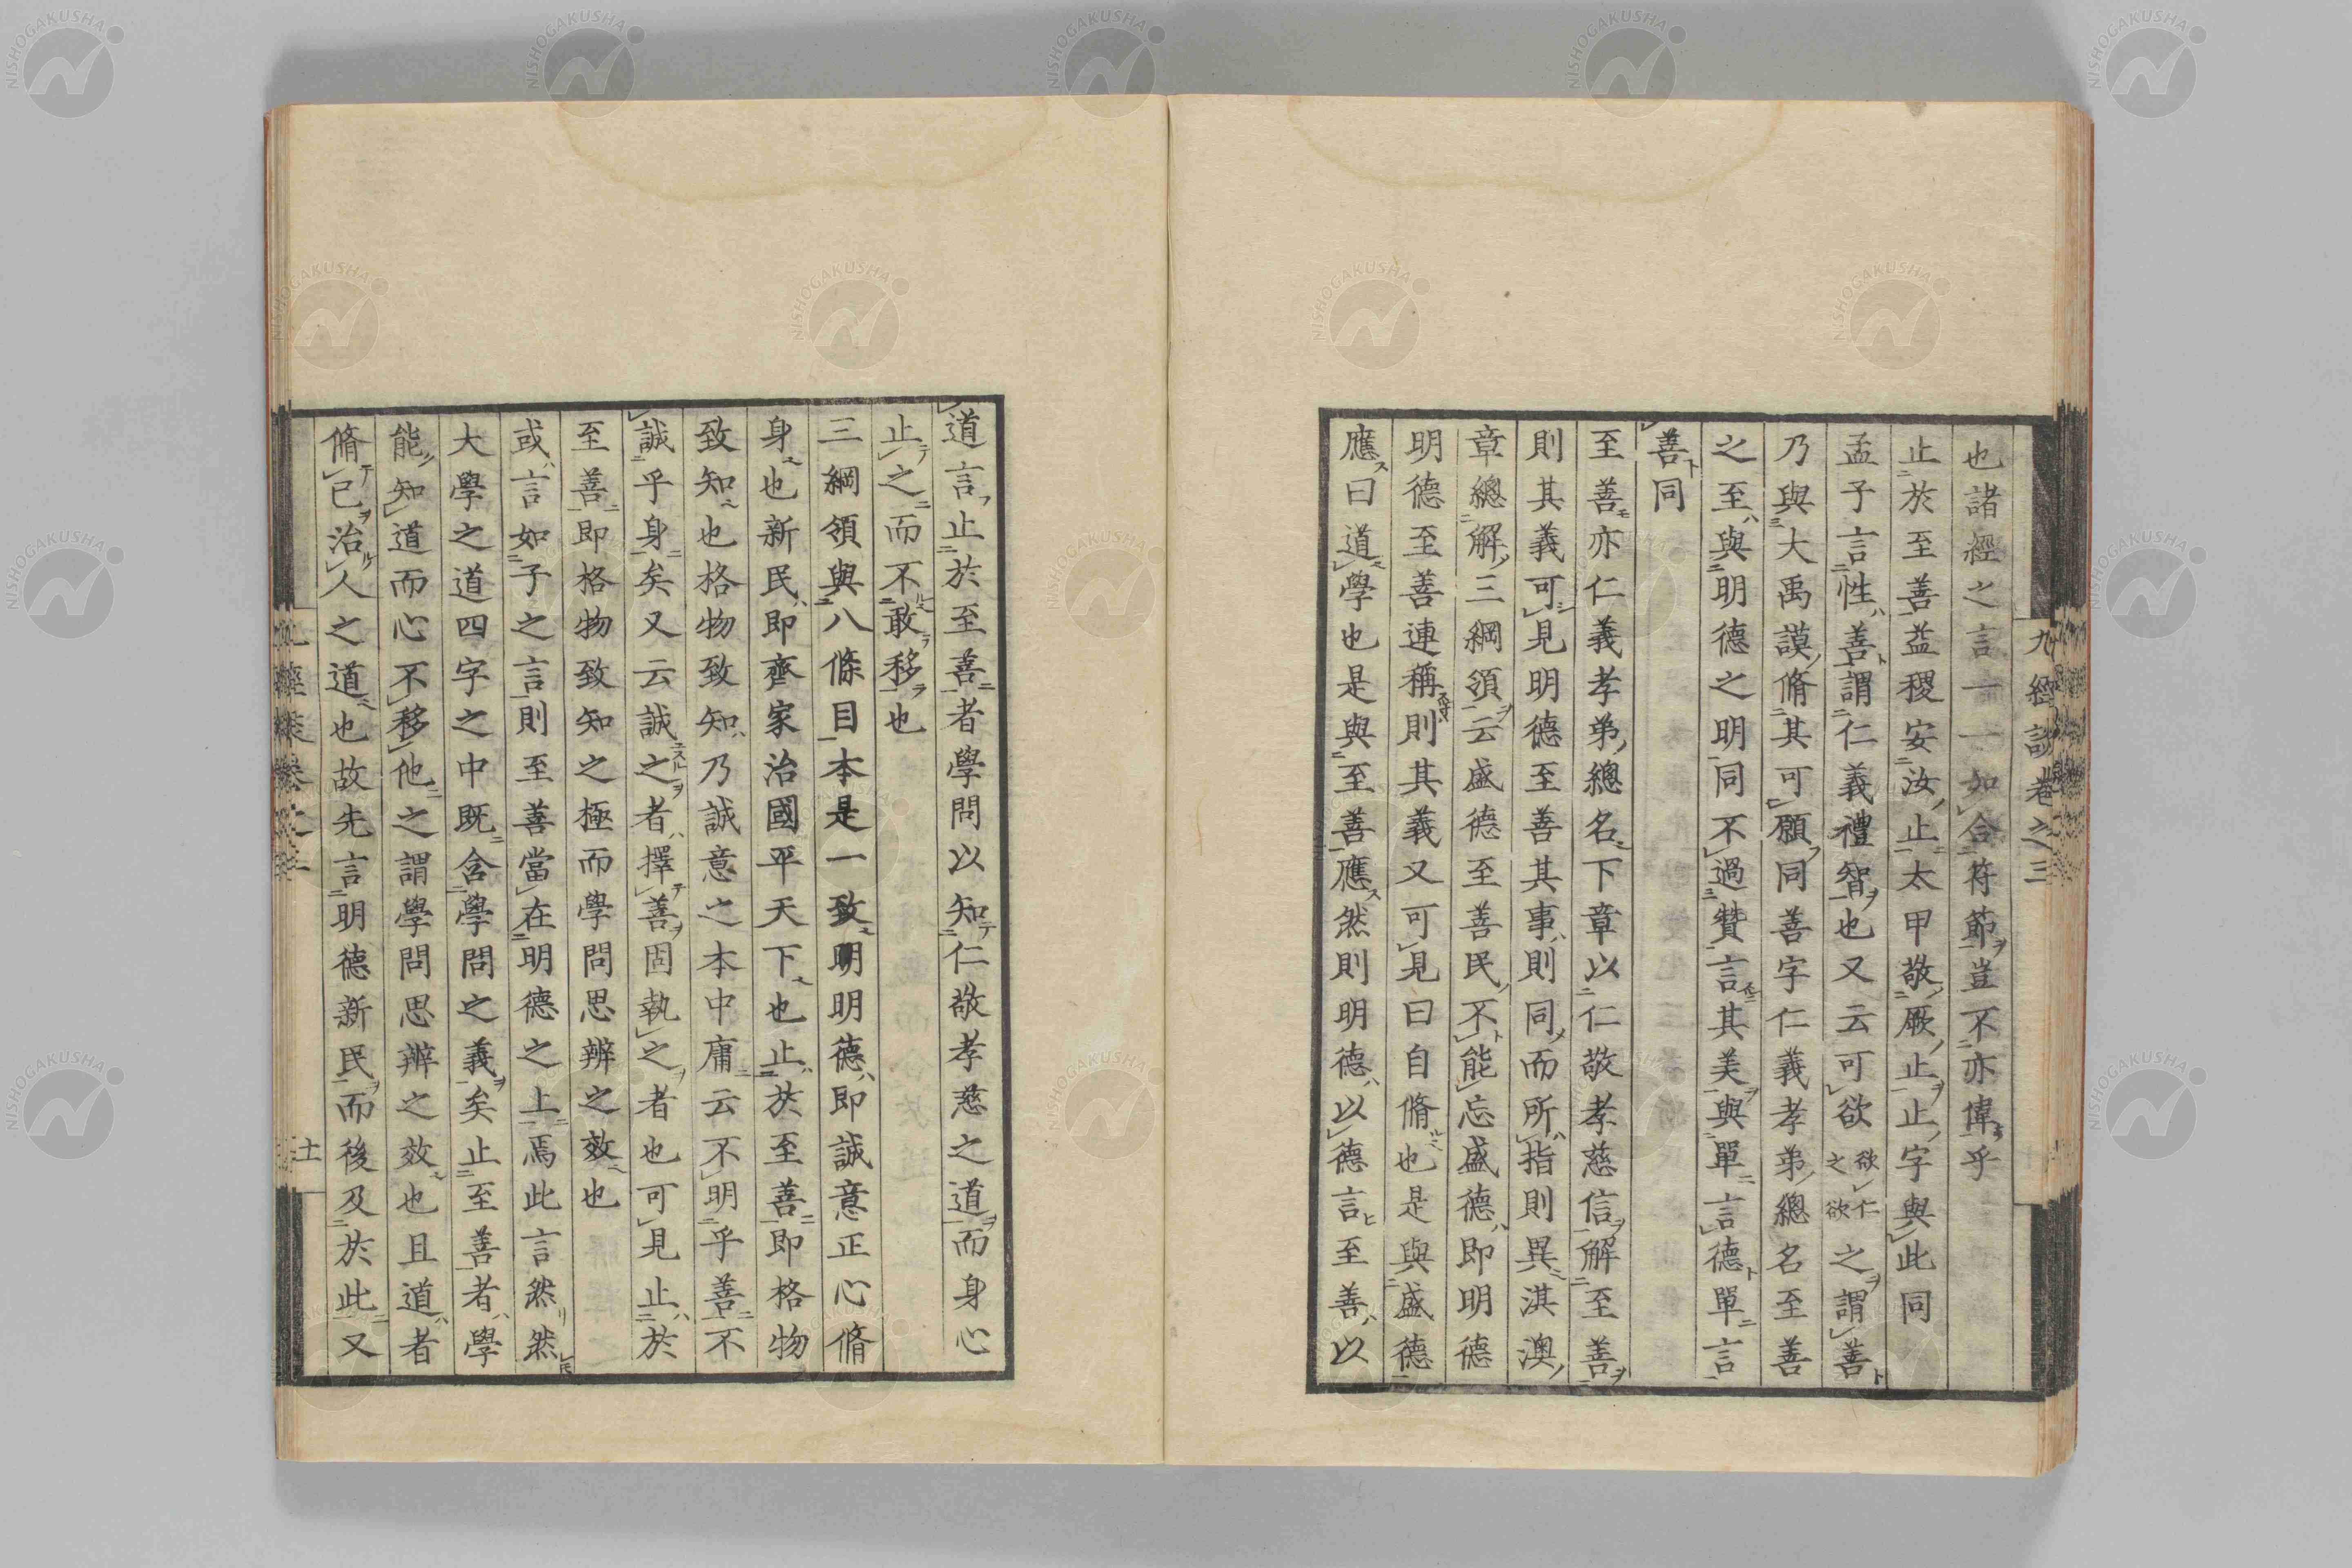 九經談卷之三
也諸經之言一一如合符節豈不亦偉乎
止於至善益稷安汝止太甲敬厥止止字與此同
孟子言性善謂仁義禮智也又云可欲欲仁之欲之謂善
乃與大禹謨脩其可願同善字仁義孝弟總名至善
之至與明德之明同不過贊言其美與單言德單言
善同
至善亦仁義孝弟總名下章以仁敬孝慈信解至善
則其義可見明德至善其事則同而所指則異淇澳
章總解三綱領云盛德至善民不能忘盛德即明德
明德至善連稱則其義又可見曰自脩也是與盛德
應曰道學也是與至善應然則明德以德言至善以
道言止於至善者學問以知仁敬孝慈之道而身心
止之而不敢移也
三綱領與八條目本是一致明明德即誠意正心脩
身也新民即齊家治國平天下也止於至善即格物
致知也格物致知乃誠意之本中庸云不明乎善不
誠乎身矣又云誠之者擇善固執之者也可見止於
至善即格物致知之極而學問思辨之效也
或言如子之言則至善當在明德之上焉此言然然
大學之道四字之中既含學問之義矣止至善者學
能知道而心不移他之謂學問思辨之效也且道者
脩己治人之道也故先言明德新民而後及於此又
NISHOGAKUSHA